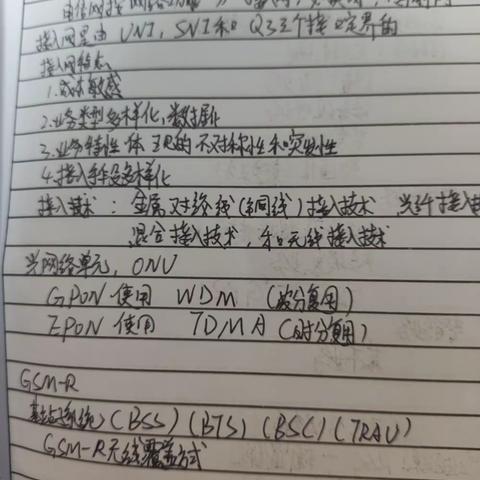 接入网是由 UNI, SNI和 Q3三个接口定界的
接入网特点
1.成本敏感
2.业务类型多样化,数据化
3.业务特性体现的不对称性和突发性
4.接入手段多样化
接入技术: 金属对绞线(铜线)接入技术 光纤接入技
混合接入技术,和无线接入技术
光网络单元, ONU
GPON 使用 WDM (波分复用)
EPON 使用 TDMA (时分复用)
GSM-R
基站子系统(BSS)(BTS)(BSC)(TRAU)
GSM-R无线覆盖方式